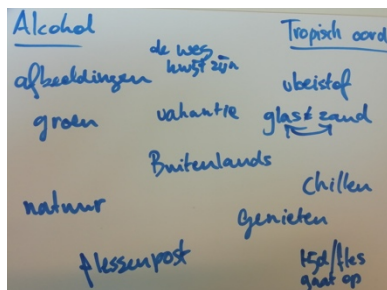 Alcohol
Tropisch oord
de weg
kwijt zijn
afbeeldingen
vloeistof
groen
vakantie
glas & zand
Buitenlands
Chillen
natuur
Genieten
flessenpost
tijd/fles
gaat op